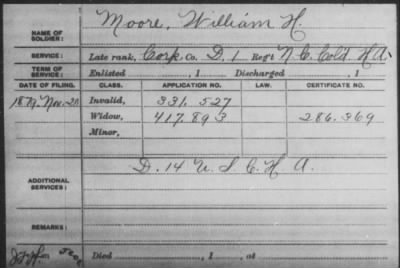 NAME OF SOLDIER: Moore, William H.
SERVICE: Late rank, Corp. Co. D, 1 Reg't N. C. Cold. H. A.
TERM OF SERVICE: Enlisted , 1 Discharged , 1
DATE OF FILING. CLASS. APPLICATION NO. LAW. CERTIFICATE NO.
1879. Nov. 20 Invalid, 331.527
Widow, 417.893 286.369
Minor,
ADDITIONAL SERVICES: D. 14 U. S. C. H. A.
REMARKS:
Died , 1 , at